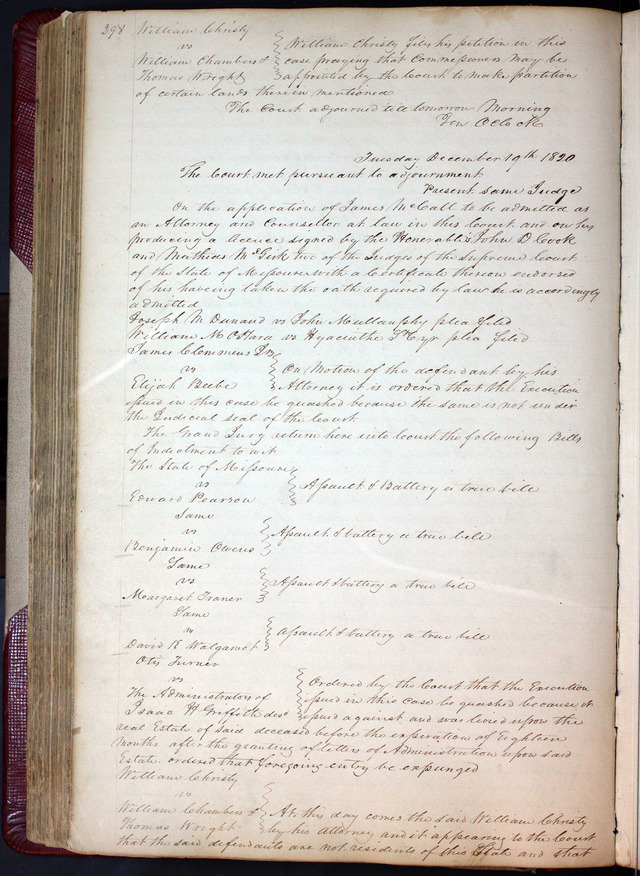 298 William Christy
vs
William Chambers &
Thomas Wright
William Christy files his petition in this
case praying that Commissioners may be
appointed by the Court to make partition
of certain lands therein mentioned
The Court adjourned till tomorrow Morning
Ten OClock
Tuesday December 19th 1820
The Court met pursuant to adjournment
Present same Judge
On the application of James McCall to be admitted as
an Attorney and Counsellor at law in this Court and on his
producing a licence signed by the Honorables John D Cook
and Mathias McGirk two of the Judges of the Supreme Court
of the State of Missouri with a Certificate thereon endorsed
of his having taken the oath required by law he is accordingly
admitted
Joseph M Dunand vs John Mullanphy plea filed
William M OHara vs Hyacinthe plea filed
James Clemmens Jr
vs
Elijah Beebe
On Motion of the defendant by his
Attorney it is ordered that the Execution
issued in this case be quashed because the same is not under
the Judicial seal of the Court
The Grand Jury return here into Court the following Bills
of Indictment to wit
The State of Missouri
vs
Edward Pearson
Assault & Battery a true bill
Same
vs
Benjamin Owens
Assault & battery a true bill
Same
vs
Margaret Traner
Assault & battery a true bill
Same
vs
David R Walgamot
Assault & battery a true bill
Otis Turner
vs
The Administrators of
Isaac W Griffith decd
Ordered by the Court that the Execution
issued in this case be quashed because it
issued against and was levied upon the
real Estate of said deceased before the expiration of Eighteen
Months after the granting of letters of Administration upon said
Estate ordered that foregoing entry be expunged
William Christy
vs
William Chambers &
Thomas Wright
At this day comes the said William Christy
by his attorney and it appearing to the Court
that the said defendants are not residents of this State and that